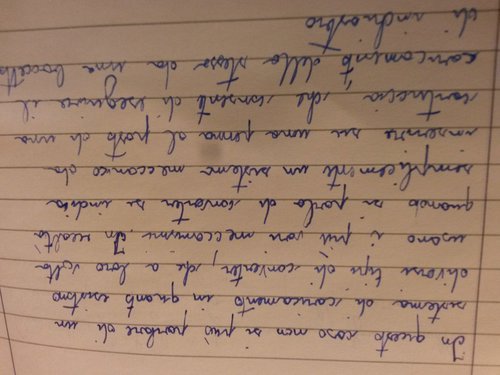 In questo caso non si può parlare di un
sistema di caricamento in quanto esistono
diversi tipi di converter, che a loro volta
usano i più vari meccanismi. In realtà
quando si parla di converter si indica
semplicemente un sistema meccanico da
inserire su una penna al posto di una
cartuccia che consente di eseguire il
caricamento della stessa da una boccetta
di inchiostro